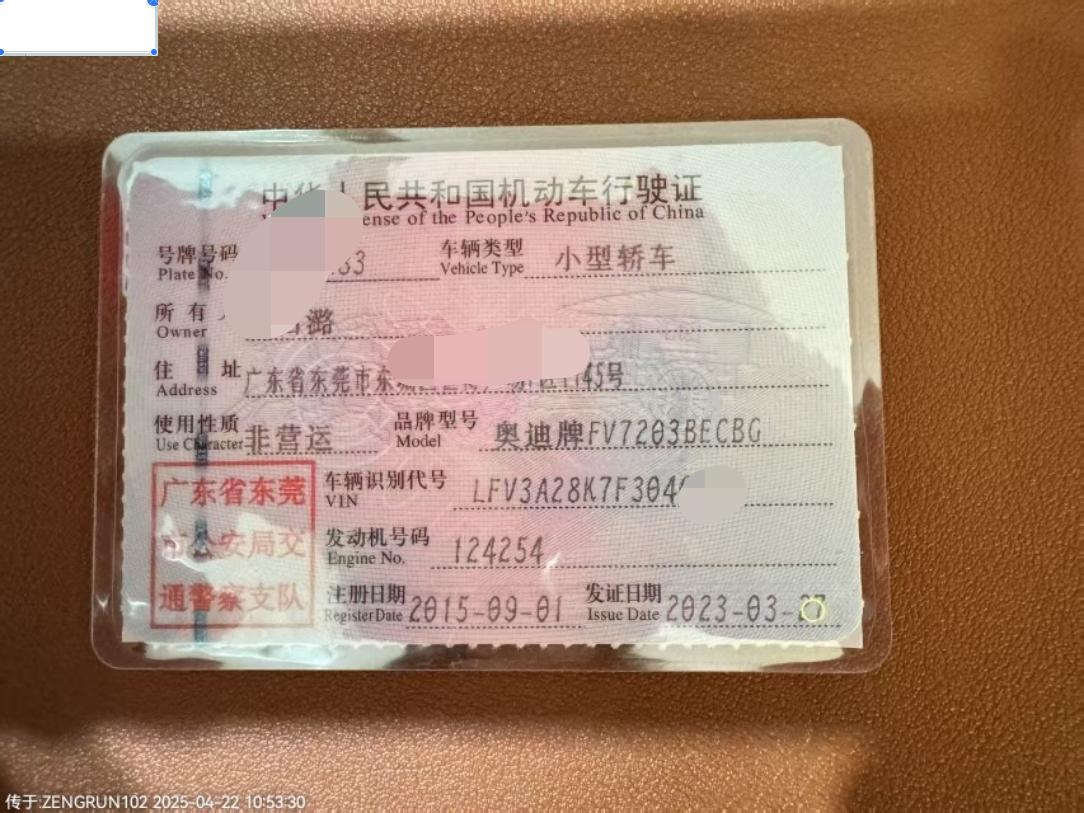 民共和国机动车行驶证
ense of the People's Republic of China
号牌号码 33 车辆类型 小型轿车
Plate No. Vehicle Type
所有 潞
Owner
住 址 广东省东莞市东 45号
Address
使用性质 非营运 品牌型号 奥迪牌FV7203BECBG
Use Character Model
广东省东莞 车辆识别代号 LFV3A28K7F304
VIN
公安局交 发动机号码 124254
Engine No.
通警察支队 注册日期 2015-09-01 发证日期 2023-03-
Register Date Issue Date
传于:ZENGRUN102 2025-04-22 10:53:30